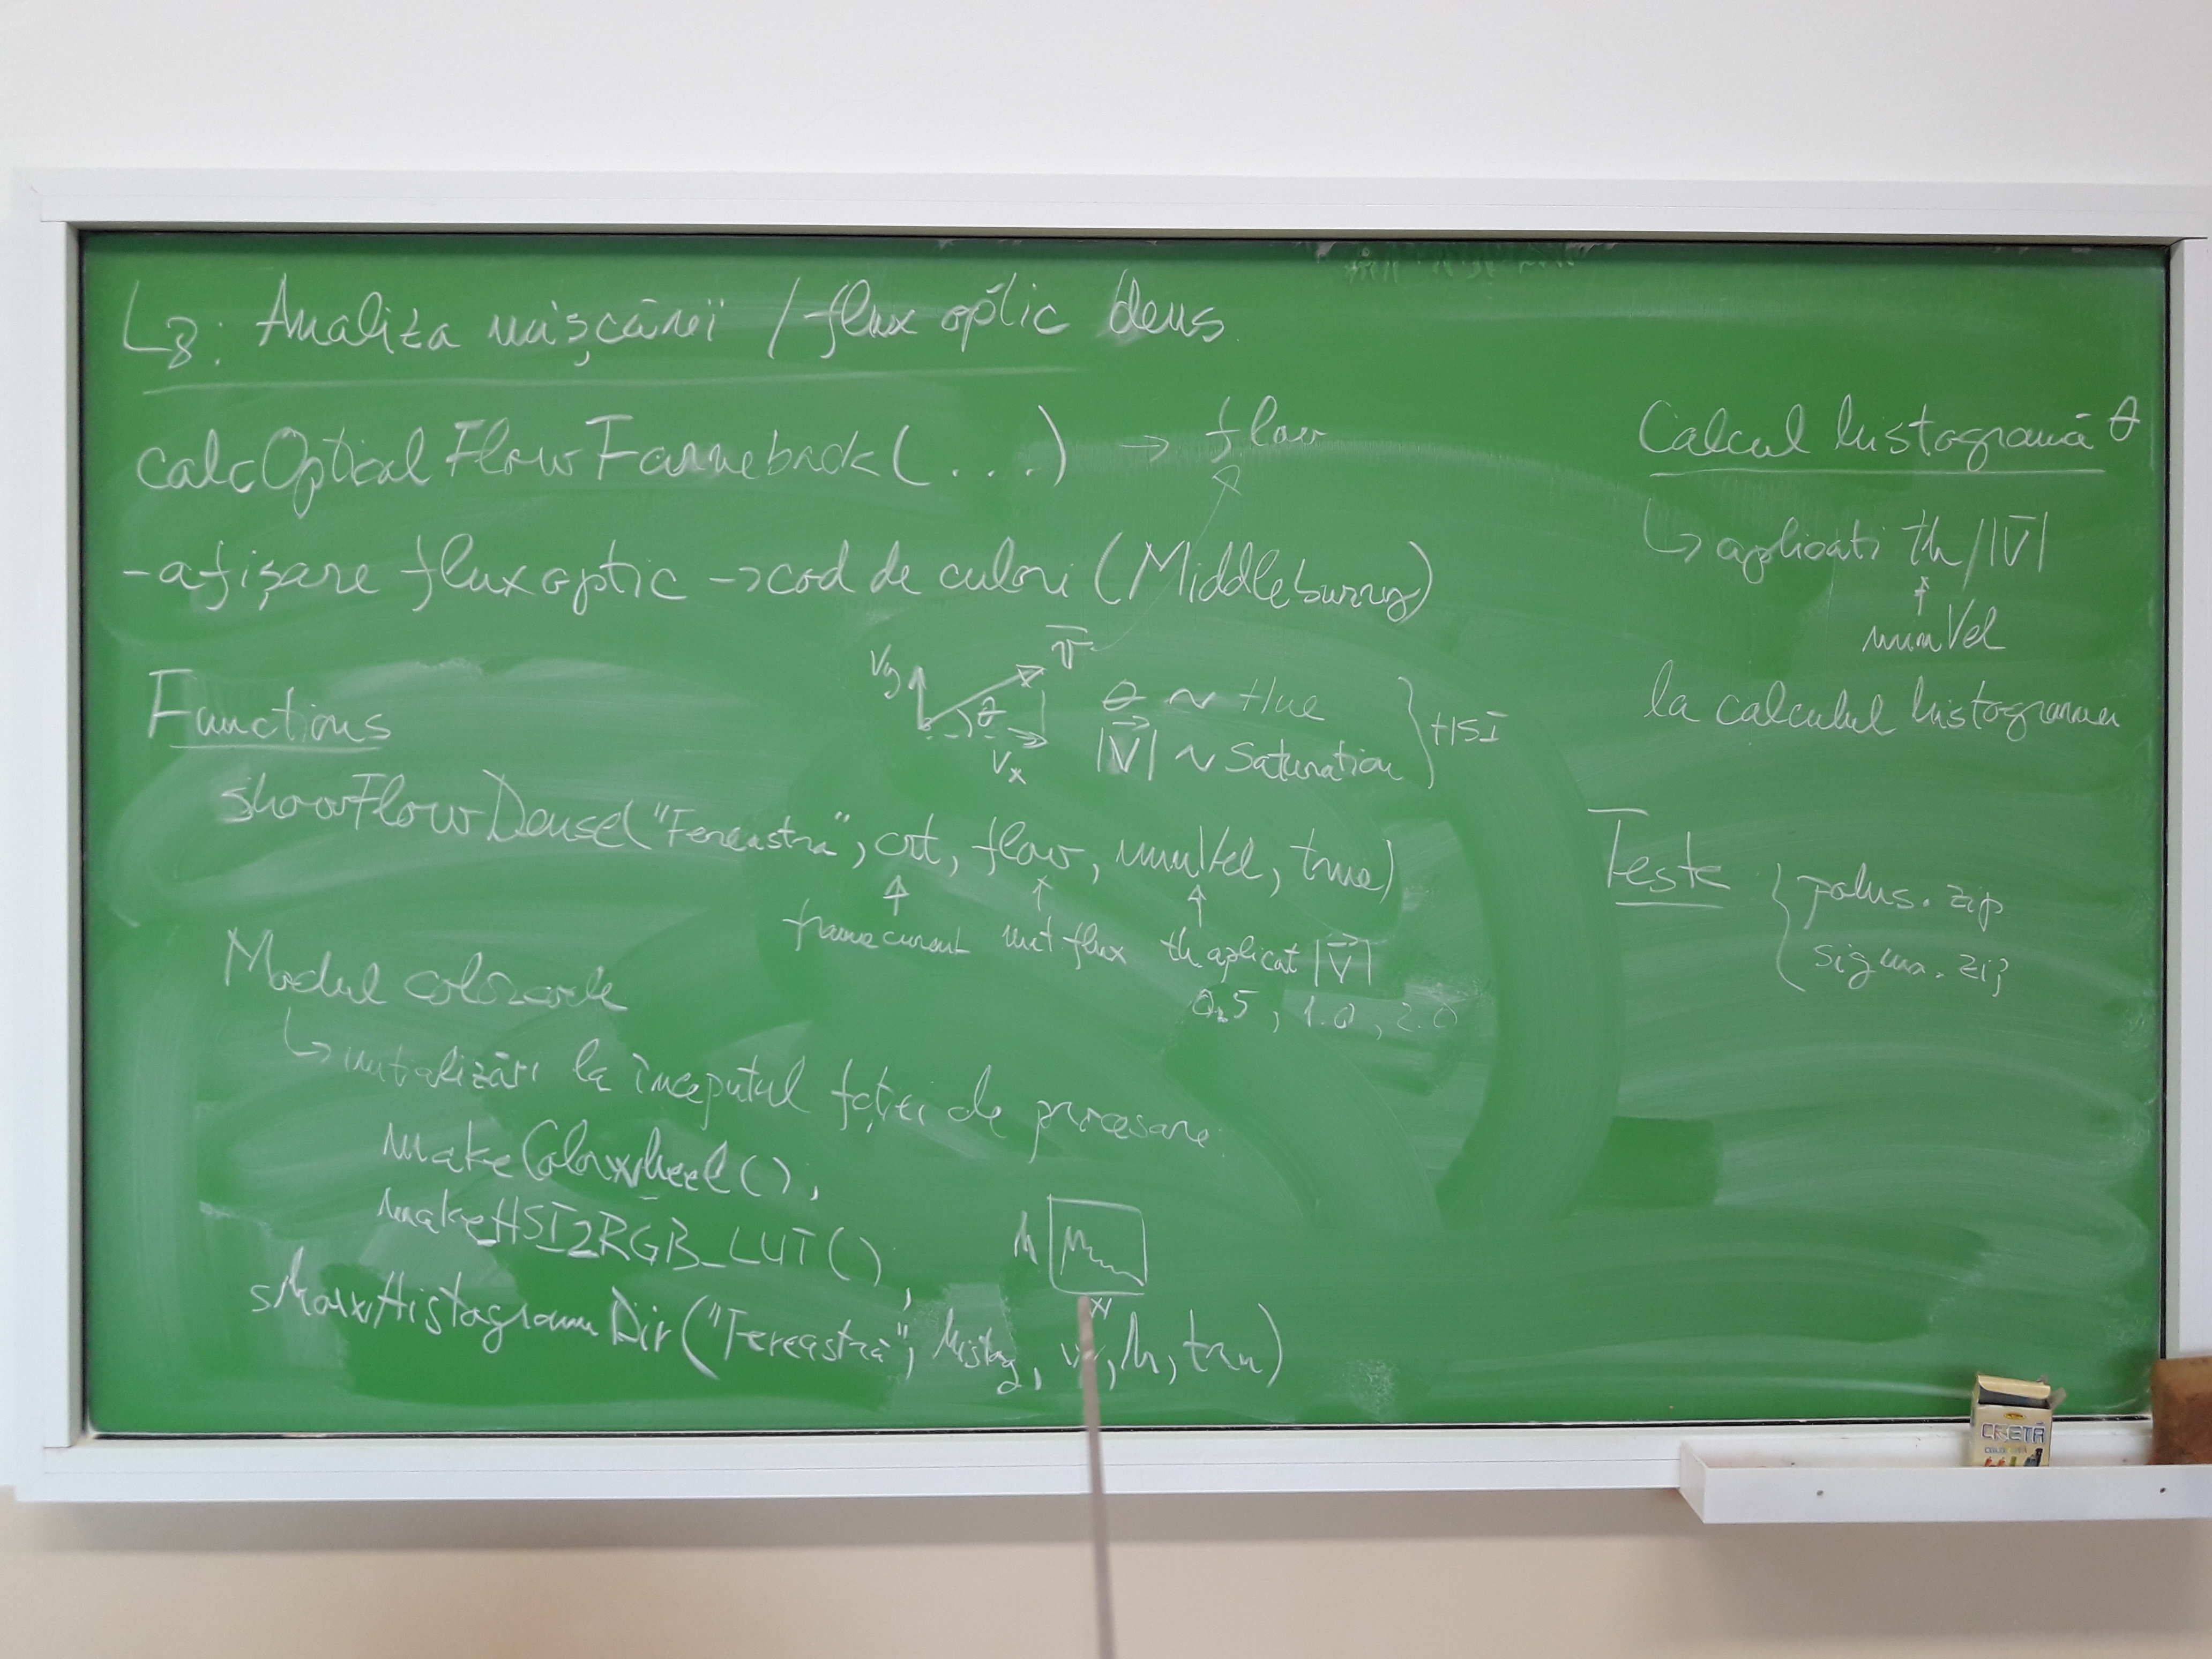 L8: Analiza mișcării / flux optic dens
calcOpticalFlowFarneback(...) → flow
- afișare flux optic → cod de culori (Middleburry)
Vy θ Vx V̄
θ ~ Hue
|V⃗| ~ Saturation } HSI
Functions
showFlowDense("Fereastra", crt, flow, minVel, true)
frame curent mat flux th aplicat |V⃗|
0.5, 1.0, 2.0
Modul colorcode
↳ initializări la începutul fației de procesare
makeColorwheel();
makeHSI2RGB_LUT();
h
w
showHistogramDir("Fereastră", histog, w, h, true)
Calcul histogramă θ
↳ aplicati th / |V̄|
minVel
la calculul histogramei
Teste { palus.zip
sigma.zip
CRETĂ